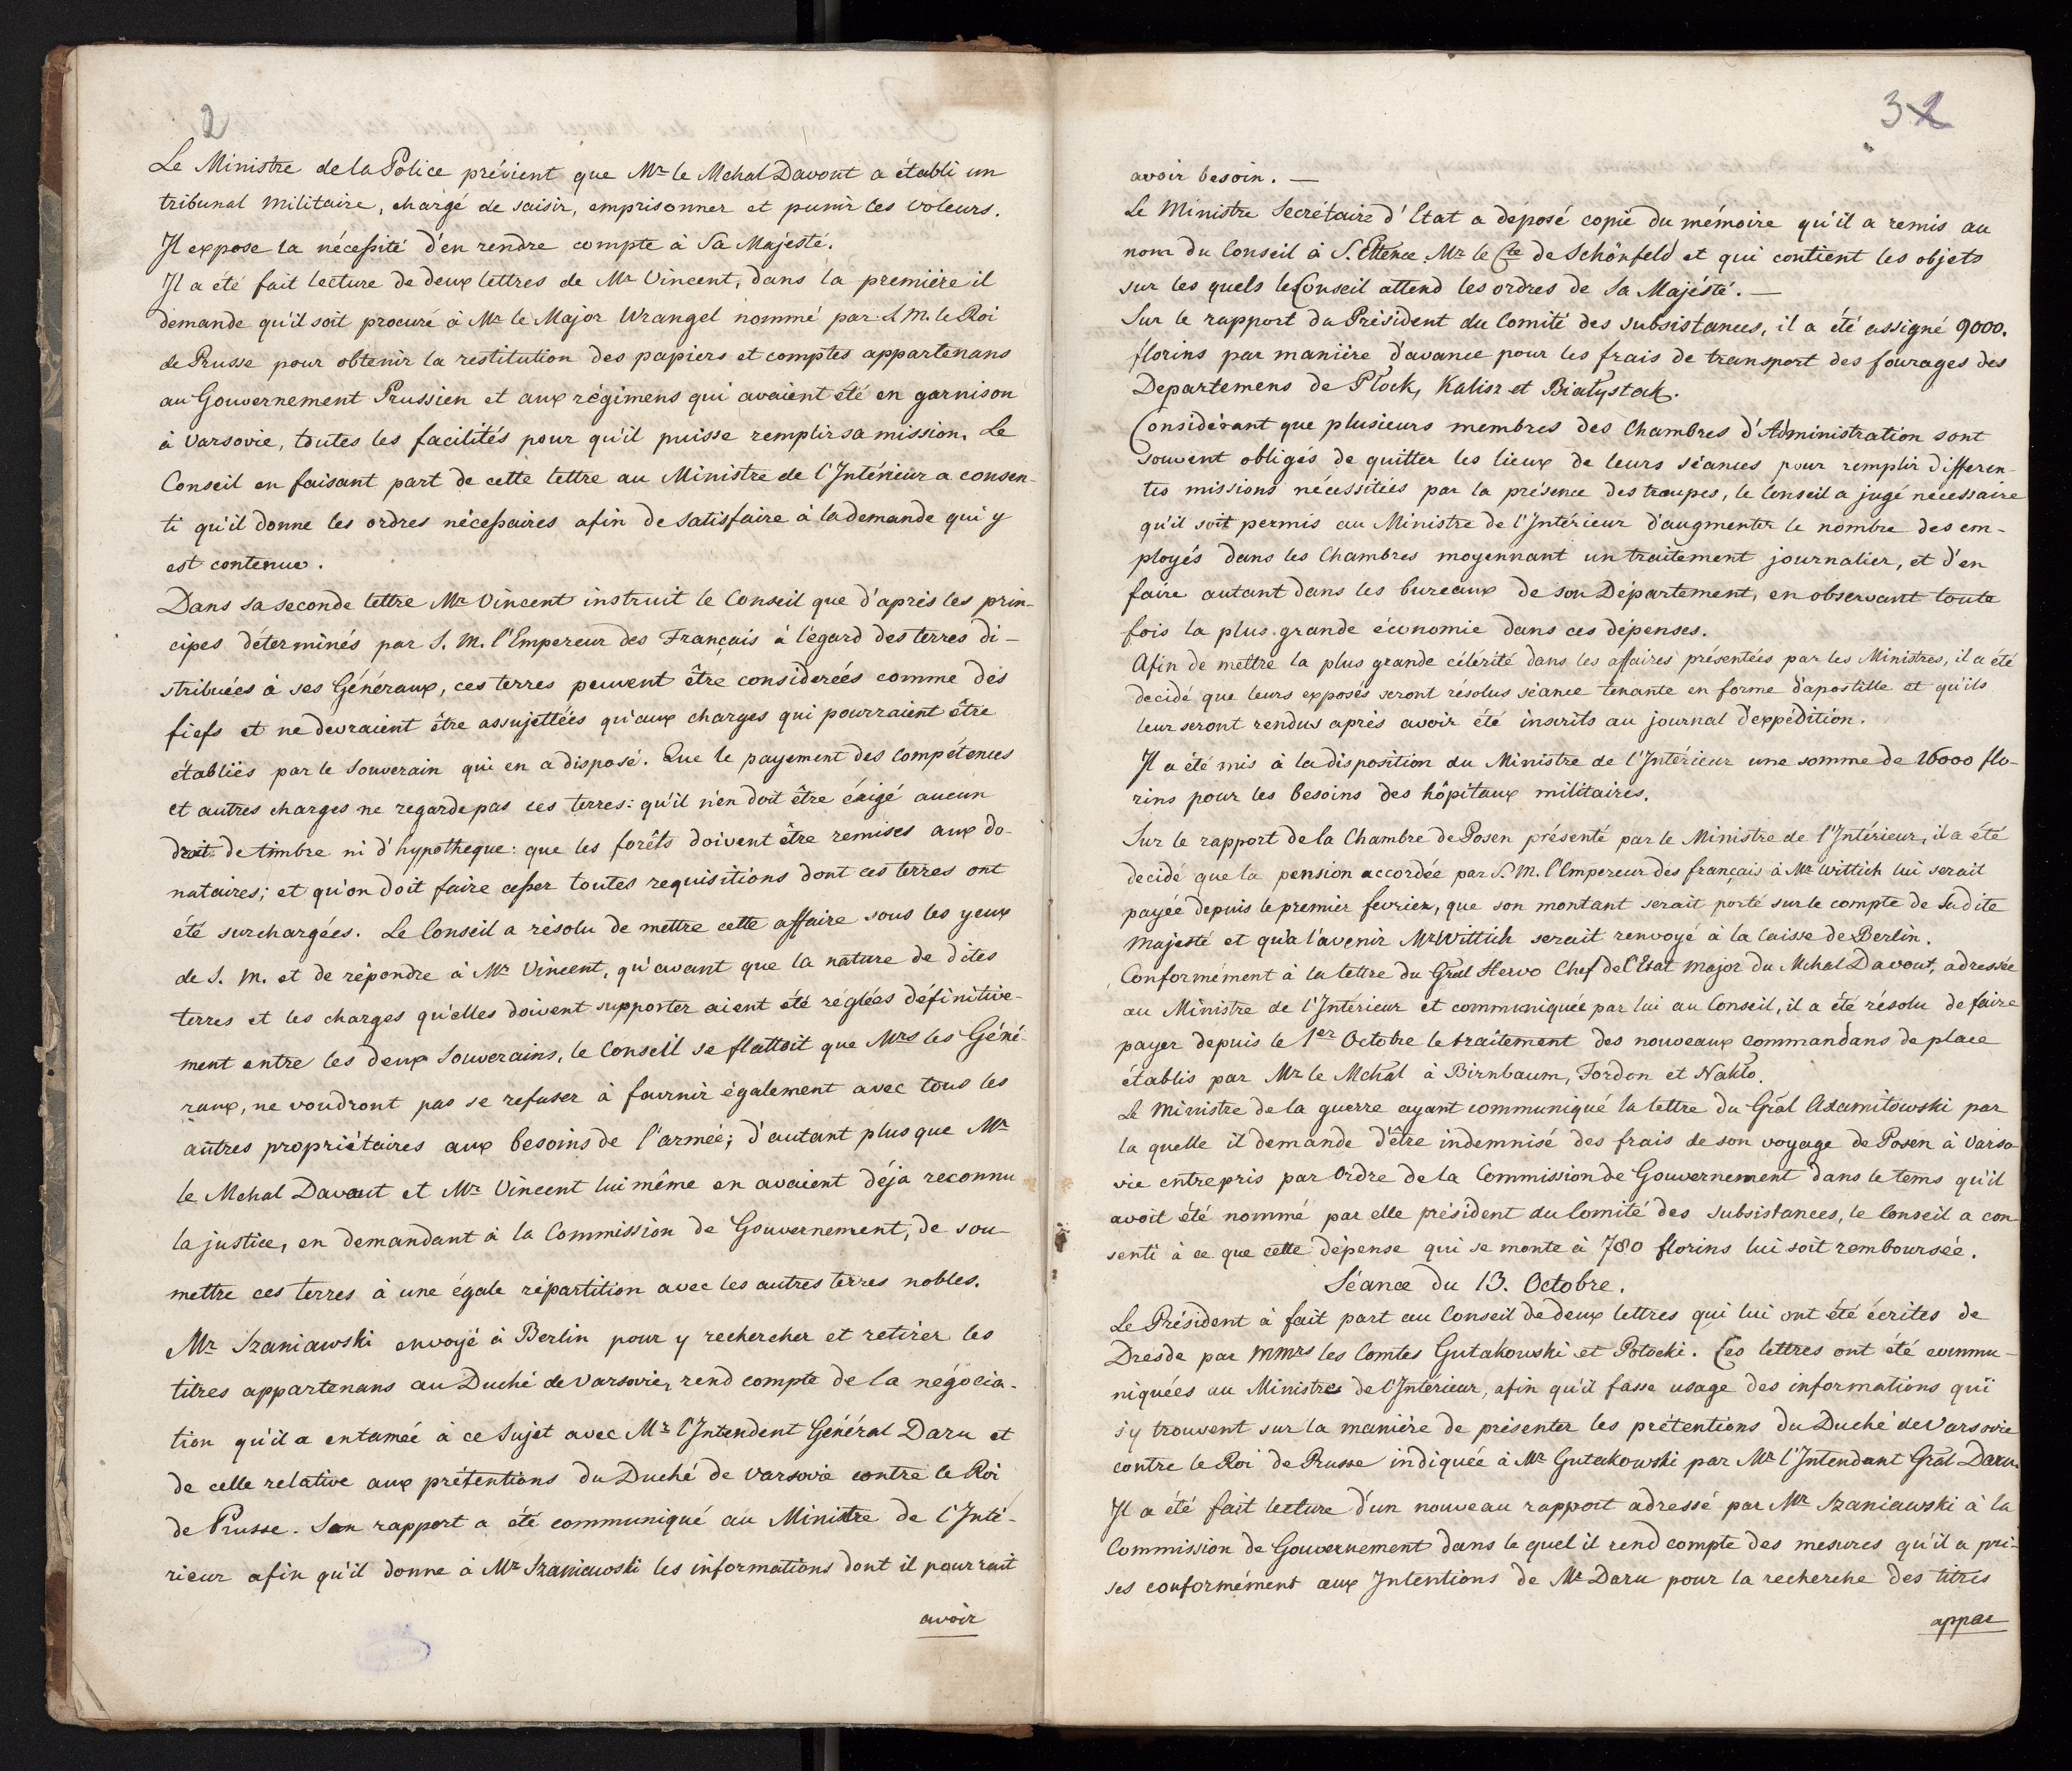 2
Le Ministre de la Police prévient que Mr le Mchal Davout a établi un
tribunal militaire, chargé de saisir, emprisonner et punir les voleurs.
Il expose la nécessité d'en rendre compte à Sa Majesté.
Il a été fait lecture de deux lettres de Mr Vincent, dans la première il
demande qu'il soit procuré à Mr le Major Wrangel nommé par S. M. le Roi
de Prusse pour obtenir la restitution des papiers et comptes appartenans
au Gouvernement Prussien et aux régimens qui avaient été en garnison
à Varsovie, toutes les facilités pour qu'il puisse remplir sa mission. Le
Conseil en faisant part de cette lettre au Ministre de l'Intérieur a consen-
ti qu'il donne les ordres nécessaires afin de satisfaire à la demande qui y
est contenue.
Dans sa seconde lettre Mr Vincent instruit le Conseil que d'après les prin-
cipes déterminés par S. M. l'Empereur des Français à l'égard des terres di-
stribuées à ses Généraux, ces terres peuvent être considereés comme des
fiefs et ne devraient être assujettées qu'aux charges qui pourraient être
établiés par le Souverain qui en a disposé. Que le payement des Compétences
et autres charges ne regarde pas ces terres: qu'il n'en doit être éxigé aucun
droit de timbre ni d'hypotheque: que les forêts doivent être remises aux do-
nataires; et qu'on doit faire cesser toutes requisitions dont ces terres ont
été surchargées. Le Conseil a résolu de mettre cette affaire sous les yeux
de S. M. et de répondre à Mr Vincent, qu'avant que la nature de dites
terres et les charges qu'elles doivent supporter aient été réglées définitive-
ment entre les deux Souverains, le Conseil se flattoit que Mrs les Géné-
raux, ne voudront pas se refuser à fournir également avec tous les
autres propriétaires aux besoins de l'armée; d'autant plus que Mr
le Mchal Davout et Mr Vincent lui même en avaient déja reconnu
la justice, en demandant à la Commission de Gouvernement, de sou-
mettre ces terres à une égale répartition avec les autres terres nobles.
Mr Szaniawski envoyé à Berlin pour y rechercher et retirer les
titres appartenans au Duché de Varsovie, rend compte de la négocia-
tion qu'il a entamée à ce Sujet avec Mr l'Intendent Général Daru et
de celle relative aux prétentions du Duché de Varsovie contre le Roi
de Prusse. Son rapport a été communiqué au Ministre de l'Inté-
rieur afin qu'il donne à Mr Szaniawski les informations dont il pourrait
avoir
3
avoir besoin. —
Le Ministre Secrétaire d'Etat a déposé copie du mémoire qu'il a remis au
nom du Conseil à S. Ettence Mr le Cte de Schönfeld et qui contient les objets
sur les quels le Conseil attend les ordres de Sa Majésté. —
Sur le rapport du Président du Comité des subsistances, il a été assigné 9000.
florins par maniére d'avance pour les frais de transport des fourages des
Departemens de Płock, Kalisz et Białystok.
Considérant que plusieurs membres des Chambres d'Administration sont
souvent obligés de quitter les lieux de leurs séances pour remplir differen-
tes missions nécessitées par la présence des troupes, le Conseil a jugé necessaire
qu'il soit permis au Ministre de l'Intérieur d'augmenter le nombre des em-
ployés dans les Chambres moyennant un traitement journalier, et d'en
faire autant dans les bureaux de son Département, en observant toute
fois la plus grande économie dans ces dépenses.
Afin de mettre la plus grande célérité dans les affaires présentées par les Ministres, il a été
decidé que leurs exposés seront résolus séance tenante en forme d'apostille et qu'ils
leur seront rendus après avoir été inscrits au journal d'expédition.
Il a été mis à la disposition du Ministre de l'Intérieur une somme de 16000 flo-
rins pour les besoins des hôpitaux militaires.
Sur le rapport de la Chambre de Posen présenté par le Ministre de l'Intérieur, il a été
decidé que la pension accordée par S. M. l'Empereur des français à Mr Wittich lui serait
payée depuis le premier fevrier, que son montant serait porté sur le compte de Sa dite
Majesté et qu'à l'avenir Mr Wittich serait renvoyé à la Caisse de Berlin.
Conformément à la lettre du Gral Hervo Chef de l'Etat Major du Mchal Davout, adressée
au Ministre de l'Intérieur et communiquée par lui au Conseil, il a été résolu de faire
payer depuis le 1er Octobre le traîtement des nouveaux commandans de place
établis par Mr le Mchal à Birnbaum, Fordon et Nakło.
Le Ministre de la guerre ayant communiqué la lettre du Gral Axamitowski par
la quelle il demande d'être indemnisé des frais de son voyage de Posen à Varso
vie entrepris par Ordre de la Commission de Gouvernement dans le tems qu'il
avoit été nommé par elle président du Comité des subsistances, le Conseil a con
senti à ce que cette dépense qui se monte à 780 florins lui soit remboursée.
Séance du 13. Octobre.
Le Président à fait part au Conseil de deux lettres qui lui ont été écrites de
Dresde par MMrs les Comtes Gutakowski et Potocki. Ces lettres ont été commu-
niquées au Ministre de l'Intérieur, afin qu'il fasse usage des informations qui
s'y trouvent sur la maniére de présenter les prétentions du Duché de Varsovie
contre le Roi de Prusse indiquée à Mr Gutakowski par Mr l'Intendant Gral Daru.
Il a été fait lecture d'un nouveau rapport adressé par Mr Szaniawski à la
Commission de Gouvernement dans le quel il rend compte des mesures qu'il a pri-
ses conformément aux Intentions de Mr Daru pour la recherche des titres
appar